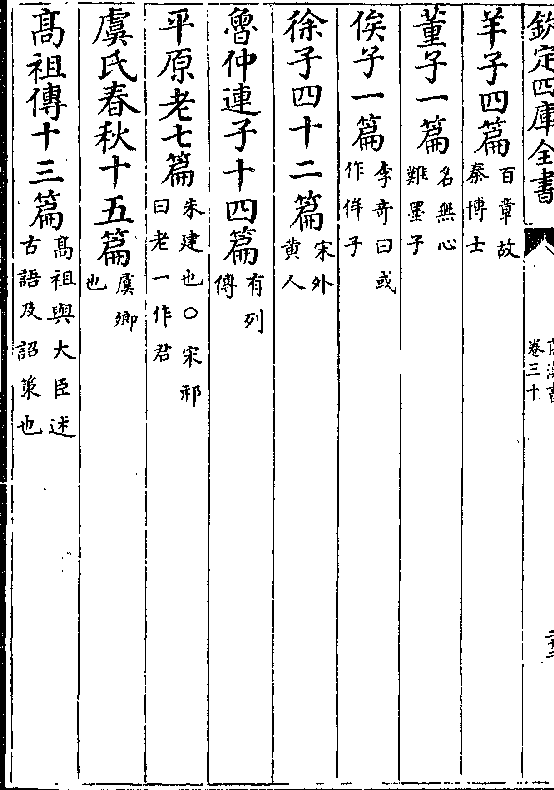 欽定四庫全書
卷三十
羊子四篇百章故秦博士
董子一篇名無心難墨子
俟子一篇李竒曰或作侔子
徐子四十二篇宋外黄人
魯仲連子十四篇有列傳
平原老七篇朱建也〇宋祁曰老一作君
虞氏春秋十五篇虞卿也
髙祖傳十三篇髙祖與大臣述古語及詔策也